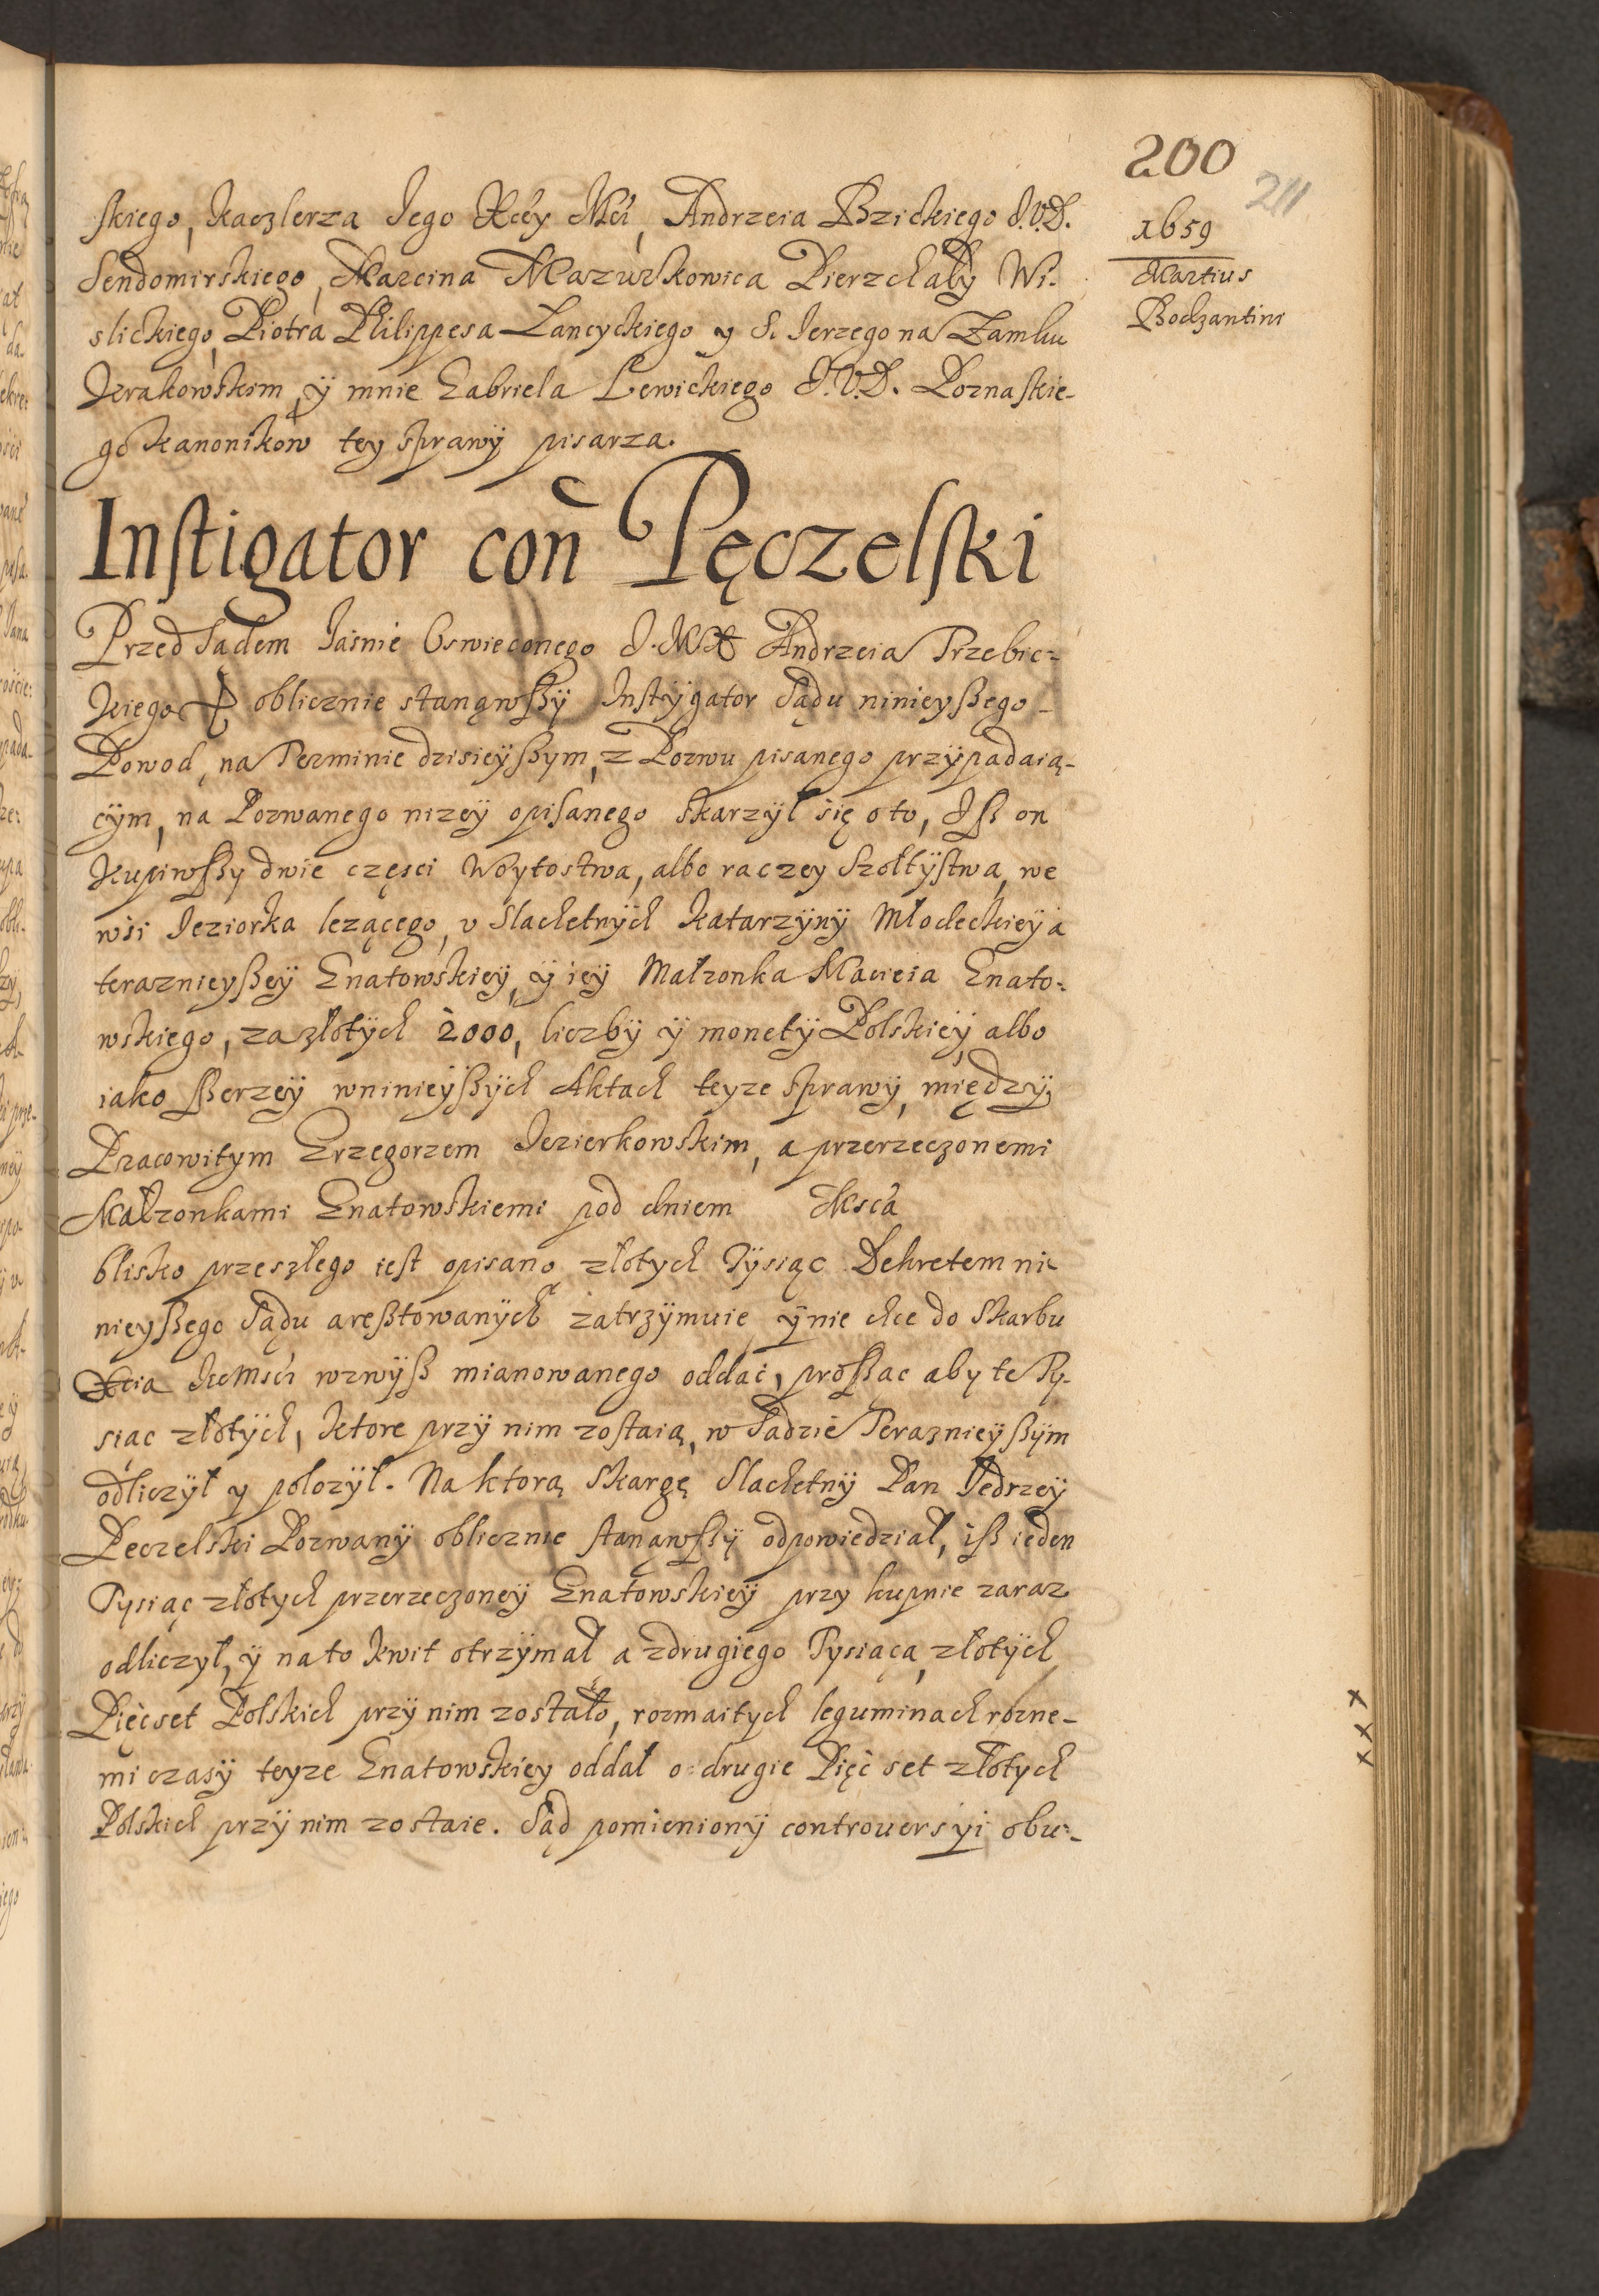 200
211
1659
Martius
Bodzantini
skiego, Kaczlerza Jego Xcey Mci, Andrzeia Bzickiego J.V.D.
Sendomirskiego, Marcina Mazurkowica Pierzchały Wi-
slickiego, Piotra Philippesa Lancyckiego y S. Jerzego na Zamku
Krakowskim, ÿ mnie Gabriela Lewickiego J.V.D. Poznaskie-
go Kanonikow tey sprawÿ pisarza.
Instigator con Pęczelski
Przed Sądem Jasnie Oswieconego J.MX Andrzeia Trzebic-
kiego oblicznie stanąwszÿ Instÿgator Sądu ninieyßego
Powod, na Terminie dzisieÿßym, z Pozwu pisanego przÿpadaią-
cÿm, na Pozwanego nizeÿ opisanego skarzÿł się o to, Iß on
kupiwszy dwie częsci Woytostwa, albo raczey Szołtÿstwa, we
wsi Jeziorka lezącego, v Slachetnÿch KatarzÿnÿMłodeckieÿ a
teraznieyßeÿ Gnatowskieÿ, ÿ ieÿ Małzonka Macieia Gnato-
wskiego, za złotÿch 2000, liczbÿ ÿ monetÿ Polskieÿ, albo
iako ßerzeÿ wninieÿßÿch Aktach teyze sprawÿ, międzÿ
Pracowitym Grzegorzem Jezierkowskim, a przerzeczonemi
Małzonkami Gnatowskiemi pod dniem Msca
blisko przeszłego iest opisano, złotych Tÿsiąc Dekretem ni-
nieyßego Sądu areßtowanÿch zatrzÿmuie, ÿ nie chce do Skarbu
Xcia JeMsci wzwÿß mianowanego oddac, proßąc aby te Ty-
siąc złotÿch, ktore przÿ nim zostaią, w Sadzie Teraznieÿßÿm
odliczÿł y polozÿł. Na ktorą Skargę Slachetnÿ Pan Jedrzeÿ
Peczelski Pozwanÿ oblicznie stanąwszÿ odpowiedział, iß ieden
Tysiąc złotych przerzeczoneÿ Gnatowskieÿ przy kupnie zaraz
odliczył, ÿ na to kwit otrzÿmał a zdrugiego Tysiąca, złotÿch
Pięcset Polskich przÿ nim zostało, rozmaitych leguminach rozne-
mi czasÿ teyze Gnatowskiey oddał o drugie Pięć set złotych
Polskich przÿ nim zostaie. Sąd pomienionÿ controuersÿi obu-